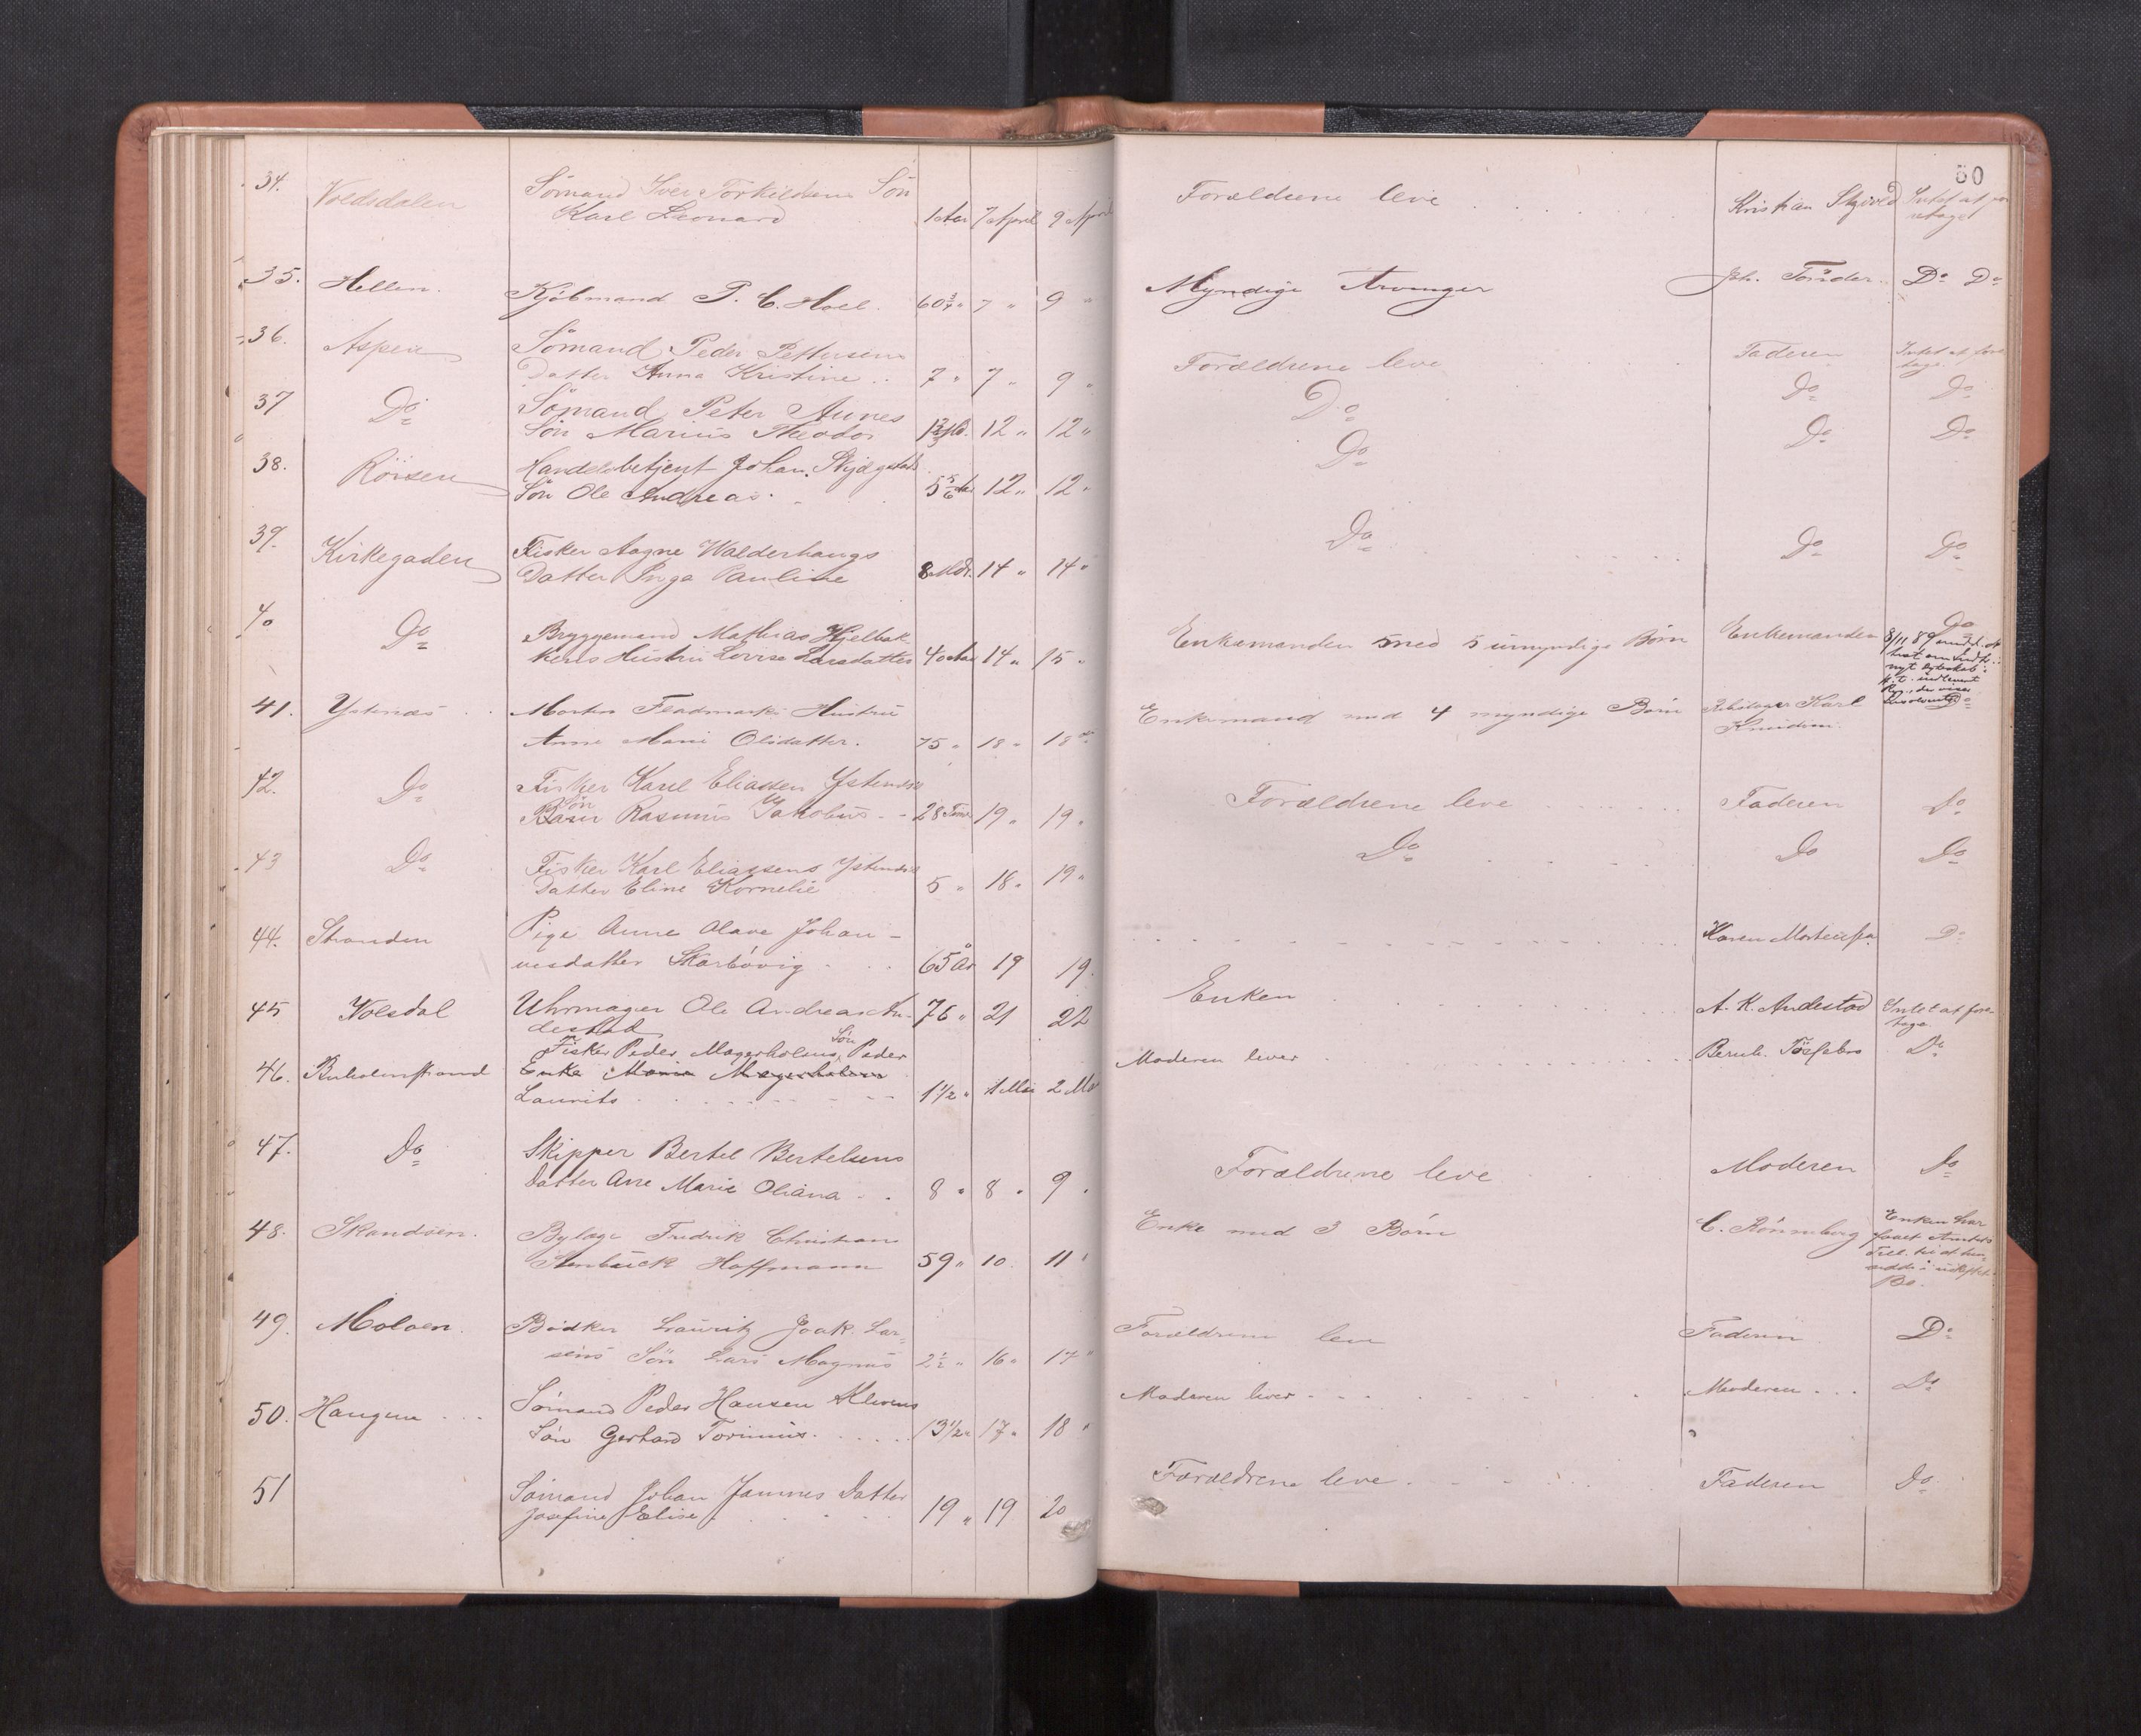 80
34. Voldsdalen Sømand Iver Torkildsens Søn
Karl Leonard 1 Aar 7 April 9 April Forældrene leve Kristian Intet at fore
retage
35. Hellen. Kjøbmand P. C. Hoel. 60 3/4 " 7 " 9 " Myndige Arvinger Joh. Tønder. Do Do
36. Aspen Sømand Peder Pettersens
Datter Anna Kristine .. 7 " 7 " 9 " Forældrene leve Faderen Intet at fore
tage.
37 Do Sømand Peter Aunes
Søn Marius Theodor 12 " 12 " Do Do Do
38. Røisen Handelsbetjent Johan
Søn Ole Andreas 5 5/6 Aar 12 " 12 " Do Do Do
39. Kirkegaden Fisker Aagne Walderhaugs
Datter Inga Pauline 8 Mdr. 14 " 14 " Do Do Do
40 Do Bryggemand Mathias Hjelbak
kens Hustru Lovise Larsdatter 40 Aar 14 " 15 " Enkemanden med 5 umyndige Børn Enkemanden Do
8/11 89
nyt
41. Ystenæs Morten Fladmarks Hustru
Anne Marie Olsdatter. 75 " 18 " 18 " Enkemand med 4 myndige Børn Karl
Knudsen. Do
42. Do Fisker Karl Eliassen Ystenæs
Søn
Rasmus Jakobus - - 28 Timer 19 " 19 " Forældrene leve Faderen Do
43 Do Fisker Karl Eliassens Ystenæs
Datter Eline Kornelie 5 " 18 " 19 " Do Do Do
44. Stranden Pige Anne Olave Johan-
nesdatter Skarbøvig 65 Aar 19 19. Karen Do
45 Volsdal Uhrmager Ole Andreas An-
destad 76 " 21 22 Enken A. K. Andestad Intet at fore-
tage
Søn
46. Buholmstrand Fisker Peder Magerholms Peder
Enke Magerholm
Laurits 1 1/2 " 1 Mai 2 Mai Moderen lever Bernh. Do
47. Do Skipper Bertel Bertelsens
Datter Ane Marie Oliana - . 8 " 8 " 9 " Forældrene leve Moderen Do
48. Skandsen. Fredrik Christian
Stenbuck Hoffmann 59 " 10. 11 " Enke med 3 Børn C. Rønneberg Enken har
faaet Amtets
Till. til at hen-
sidde i uskiftet
Bo.
49. Moloen. Bødker Lauritz Joak. Lar-
sens Søn Lars Magnus 2 1/2 " 16 " 17 " Forældrene leve Faderen Do
50. Haugen Sømand Peder Hansen Klevens
Søn Gerhard 13 1/2 " 17 " 18 " Moderen lever Moderen Do
51 Sømand Johan Jannes Datter
Josefine Elise 19 " 19 20 Forældrene leve Faderen Do